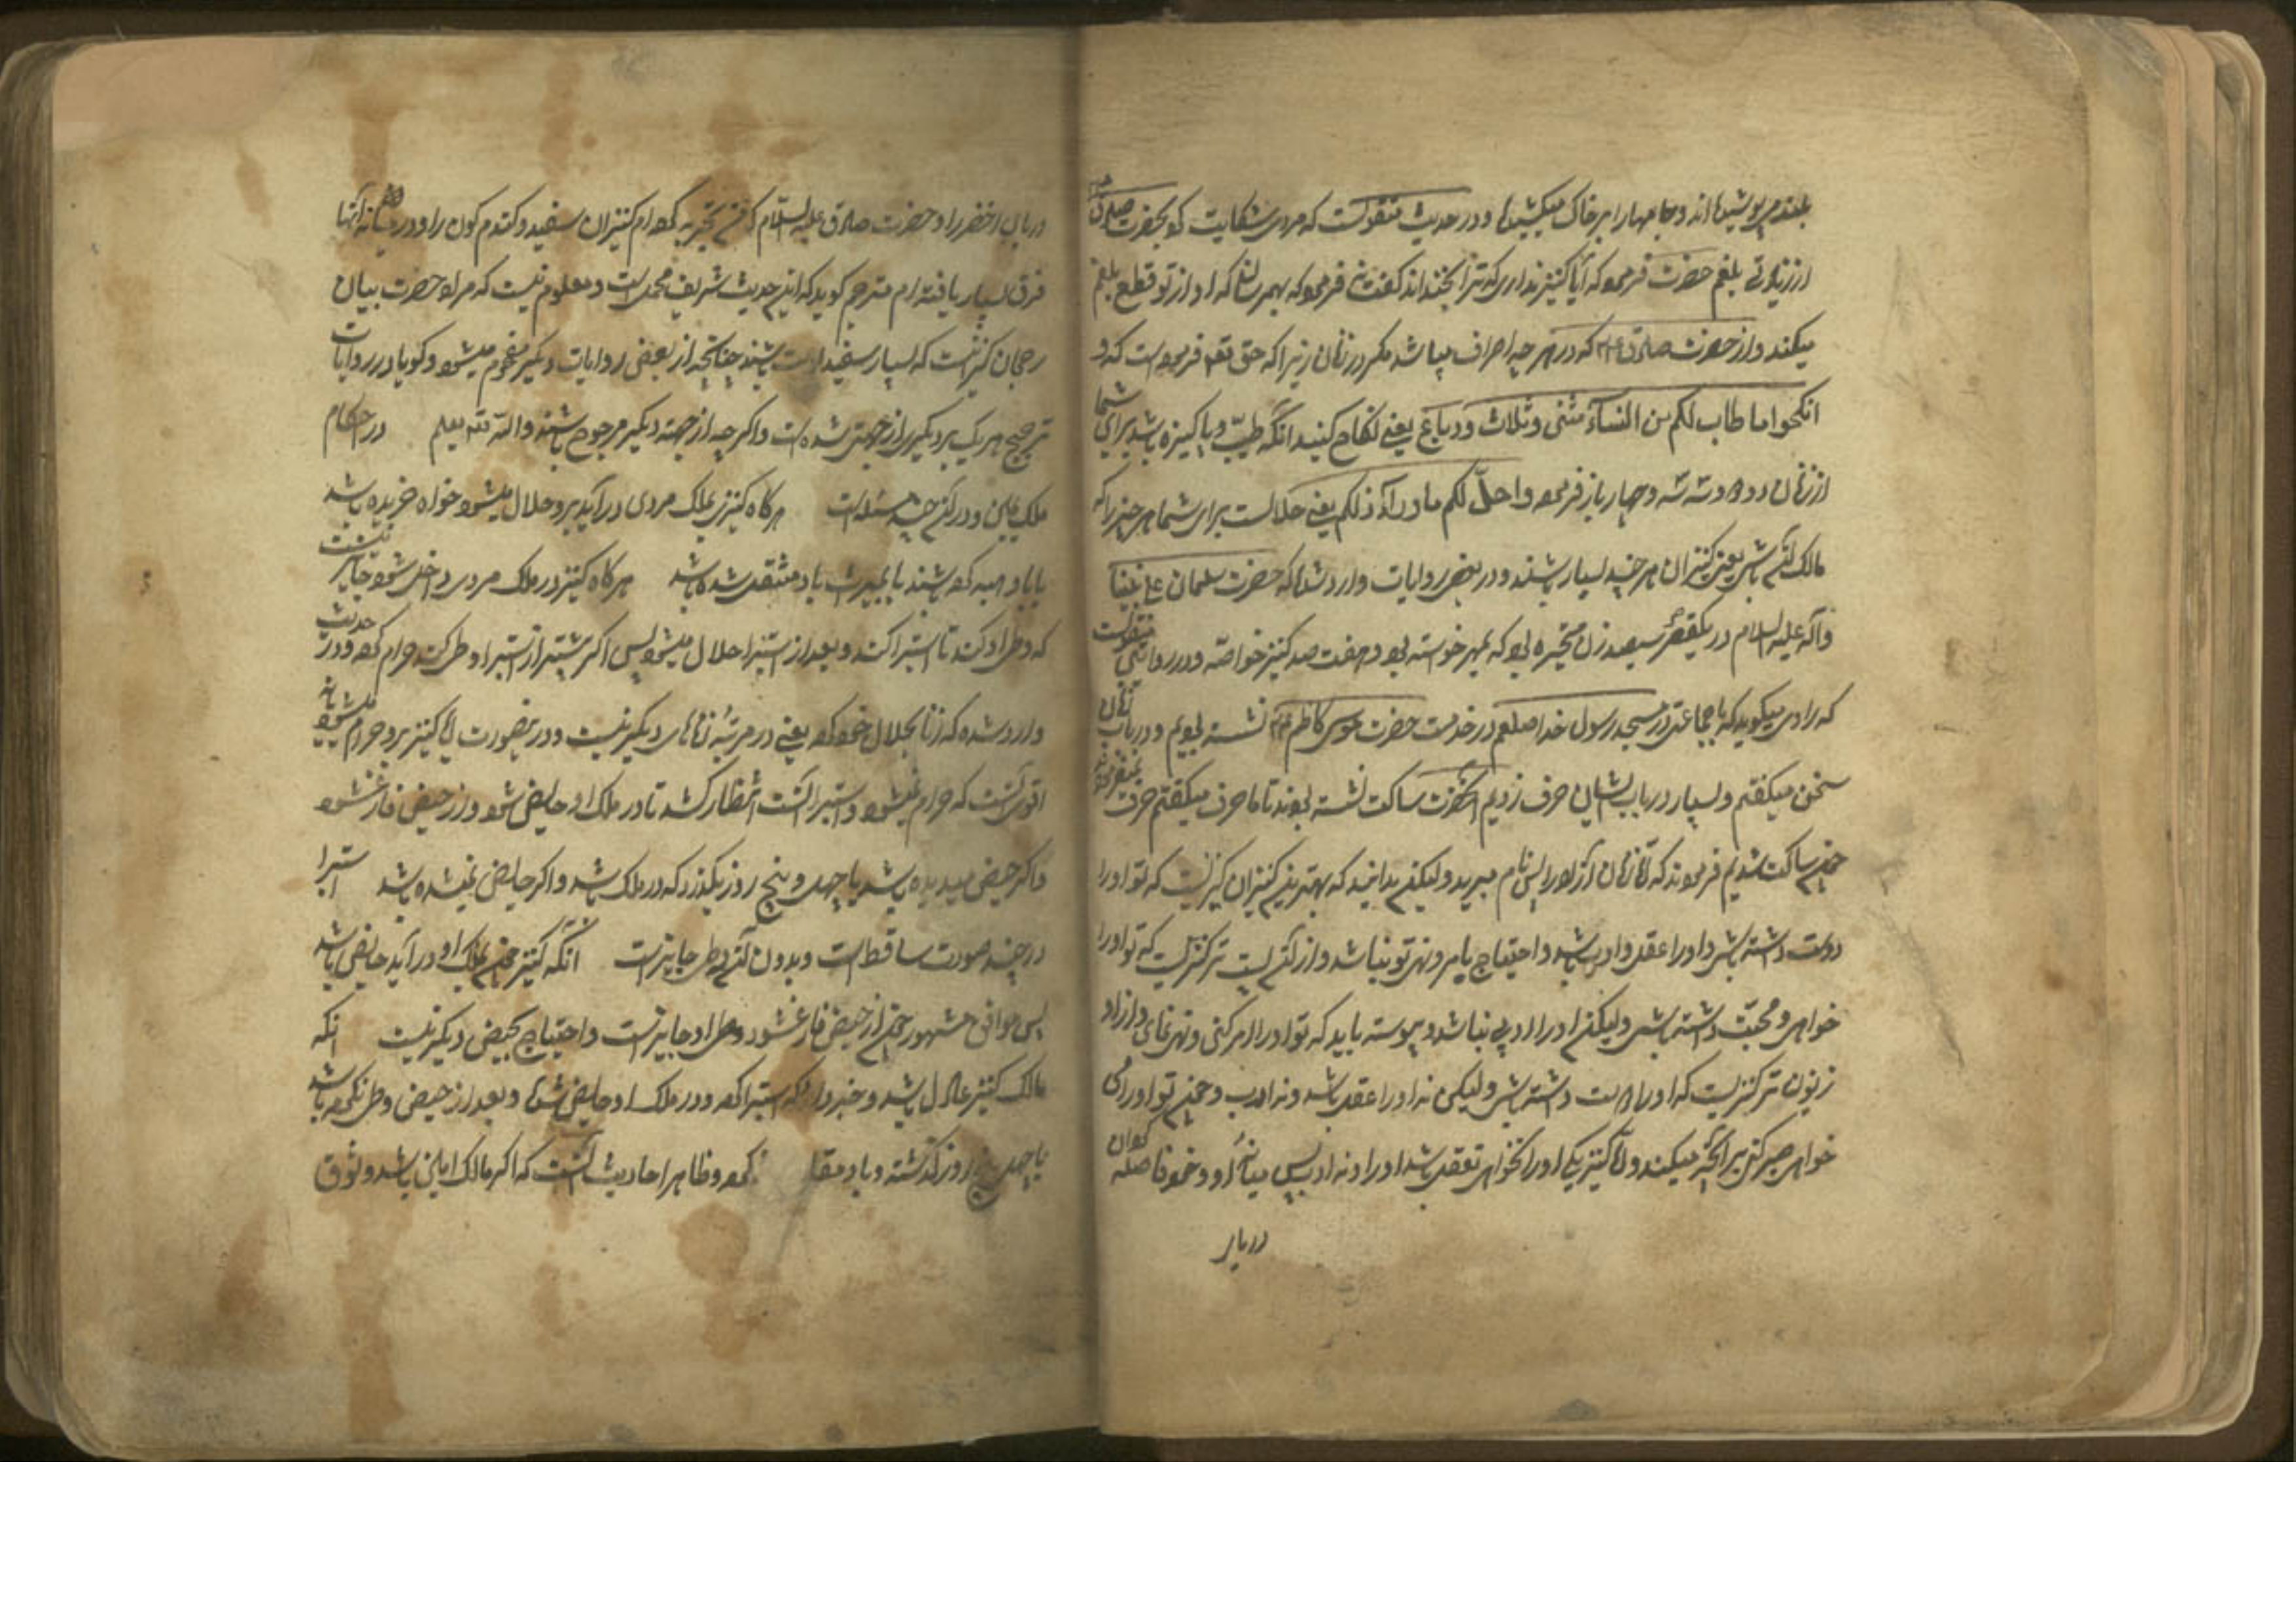 بلند می‌پوشیده‌اند و جامها را بر خاک میکشیدند و در حدیث منقولست که مردی شکایت کرد بحضرت صادق
از زیادتی بلغم حضرت فرمود که آیا کنیز نداری که ترا بخنداند گفت نه فرمود که بهم رسان که او از تو قطع بلغم
میکند و از حضرت صادق که در هر چه اسراف میباشد مگر در زنان زیرا که حق تعه فرموده است که
انکحوا ما طاب لکم من النسآء مثنی و ثلاث و رباع یعنی نکاح کنید آنکه طیب و پاکیزه باشد برای شما
از زنان دو دو و سه سه و چهار باز فرموده و احلّ لکم ما ورآء ذلکم یعنی حلالست برای شما هر چند را که
مالک باشی یعنی کنیزان هر چند بسیار باشند و در بعضی روایات وارد شده که حضرت سلمان علی نبینا
وآله علیه السلام در یکقصر سیصد زن بود که بمهر خواسته بود و هفت صد کنیز خواصه و در روایتی منقولست
که راوی میکوید که با جماعتی در مسجد رسول خدا صلعم در خدمت حضرت موسی کاظم نشسته بودیم و در باب زنان
سخن میکفتیم و بسیار در باب ایشان حرف زدیم آنحضرت ساکت نشسته بودند تا ما حرف میکفتیم حرف نمیفرمود
چون ساکت شدیم فرمودند که زنان آزاد را پس نام مبرید ولیکن بدانید که بهترین کنیزان کنیزیست که تو او را
دوست داشته باشی و او را عقل و ادب باشد و احتیاج بامر و نهی تو نباشد و از آن پست تر کنیزیست که تو او را
خواهی و محبت داشته باشی ولیکن او را ادبی نباشد و پیوسته باید که تو او را امر کنی و نهی نمای و از او
زبون تر کنیزیست که او را دوست داشته باشی ولیکن نه او را عقل باشد و نه ادب و چون تو او را می
خواهی صبر کنی بر آنچه میکند و کنیزیکه او را نخواهی نه عقل باشد او را و نه ادب پس میانه او و خود فاصله کردان
دریار
دریای اخضر را و حضرت صادق علیه السلام گفت تجربه کرده‌ام کنیزان سفید و کندم کون را و در میانه آنها
فرق بسیار یافته‌ام مترجم کوید که این حدیث شریف مجمل است و معلوم نیست که مراد حضرت بیان
رجحان کنیزیست که بسیار سفید است باشند چنانچه از بعضی روایات دیگر مفهوم میشود و کویا در روایات
ترجیح هر یک بر دیگری از جهتی شده است و اگر چه از جهة دیگر مرجوح باشند والله تعه یعلم در احکام
ملک یمین و در آن چند مسئله است هرگاه کنیزی بملک مردی در آید بر او حلال میشود خواه خریده باشد
یا باو هبه کرده باشند یا بمیراث باو منتقل شده باشد هرگاه کنیز در ملک مردی داخل شود جایز نیست
که وطی او کند تا استبرا کند و بعد از استبرا حلال میشود پس اگر پیشتر از استبرا وطی کند حرام کرده و در حدیث
وارد شده که زنا بحلال خود کرده یعنی در مرتبه زناهای دیگر نیست و در ینصورت آیا کنیز بر او حرام میشود یا نه
اقوی آنست که حرام نمیشود و استبرا آنست انتظار کشد تا در ملک او حایض شود و از حیض فارغ شود
و اگر حیض میدیده باشد یا چهل و پنج روز بگذرد که در ملک باشد و اگر حایض نمیشده باشد استبرا
در چند صورت ساقط است و بدون آن وطی جایز است آنکه کنیز چون بملک او در آید حایض باشد
پس موافق مشهور چون از حیض فارغ شود وطی او جایز است و احتیاج بحیض دیگر نیست آنکه
مالک کنیز عادل باشد و خبر داد که استبرا کرده و در ملک او حایض شده و بعد از حیض وطی نکرده باشد
یا چهل پنج روز گذشته و با او مقا کرده و ظاهر احادیث آنست که اگر مالک امین باشد و وثوق